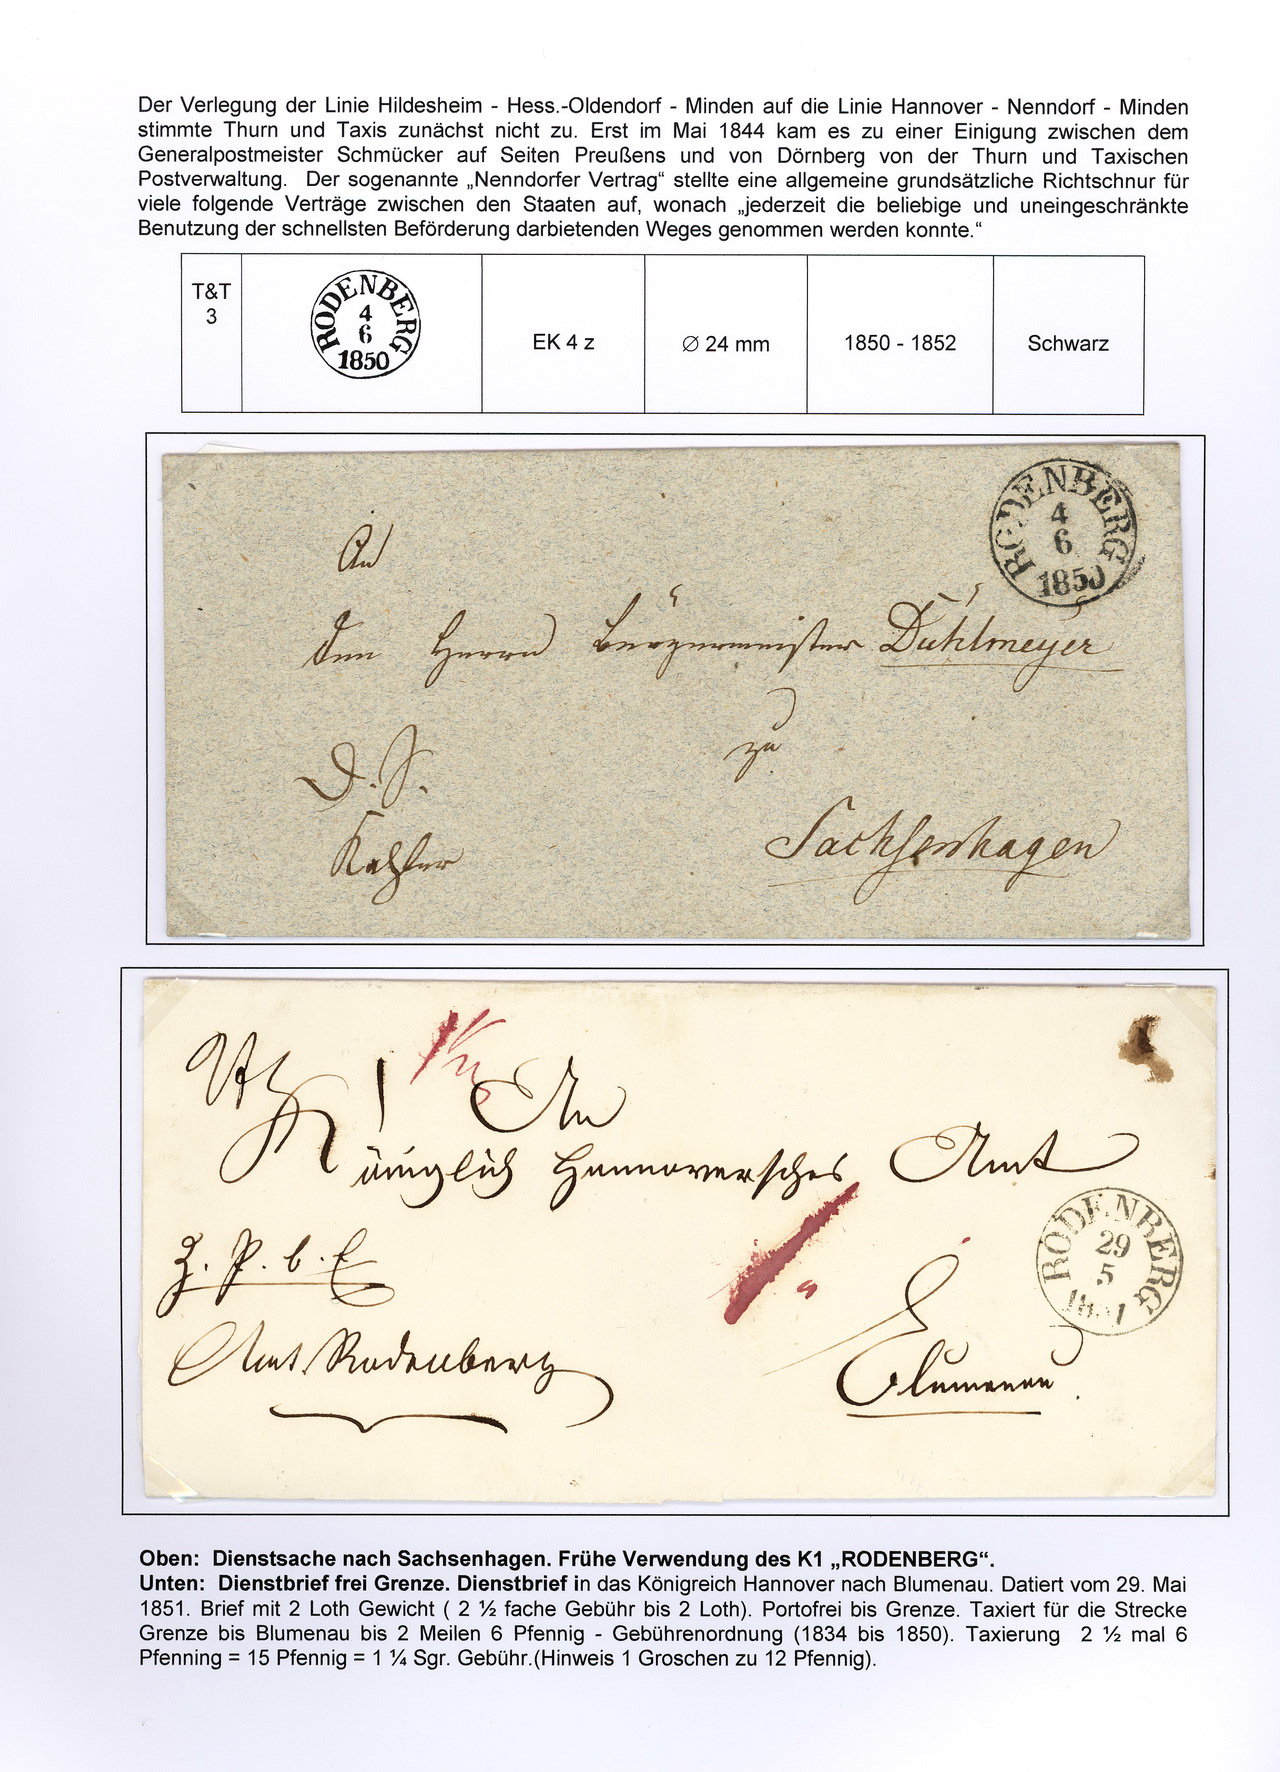 Der Verlegung der Linie Hildesheim - Hess.-Oldendorf - Minden auf die Linie Hannover - Nenndorf - Minden
stimmte Thurn und Taxis zunächst nicht zu. Erst im Mai 1844 kam es zu einer Einigung zwischen dem
Generalpostmeister Schmücker auf Seiten Preußens und von Dörnberg von der Thurn und Taxischen
Postverwaltung. Der sogenannte „Nenndorfer Vertrag“ stellte eine allgemeine grundsätzliche Richtschnur für
viele folgende Verträge zwischen den Staaten auf, wonach „jederzeit die beliebige und uneingeschränkte
Benutzung der schnellsten Beförderung darbietenden Weges genommen werden konnte.“
T&T
3
RODENBERG
4
6
1850
EK 4 z
∅ 24 mm
1850 - 1852
Schwarz
RODENBERG
4
6
1850
An
den Herrn Bürgermeister Dühlmeyer
zu
D. S.
Sachsenhagen
An
Königlich Hannoversches Amt
RODENBERG
29
5
1851
Z. P. b. E
Amt Rodenberg
Blumenau.
Oben: Dienstsache nach Sachsenhagen. Frühe Verwendung des K1 „RODENBERG“.
Unten: Dienstbrief frei Grenze. Dienstbrief in das Königreich Hannover nach Blumenau. Datiert vom 29. Mai
1851. Brief mit 2 Loth Gewicht ( 2 ½ fache Gebühr bis 2 Loth). Portofrei bis Grenze. Taxiert für die Strecke
Grenze bis Blumenau bis 2 Meilen 6 Pfennig - Gebührenordnung (1834 bis 1850). Taxierung 2 ½ mal 6
Pfenning = 15 Pfennig = 1 ¼ Sgr. Gebühr.(Hinweis 1 Groschen zu 12 Pfennig).